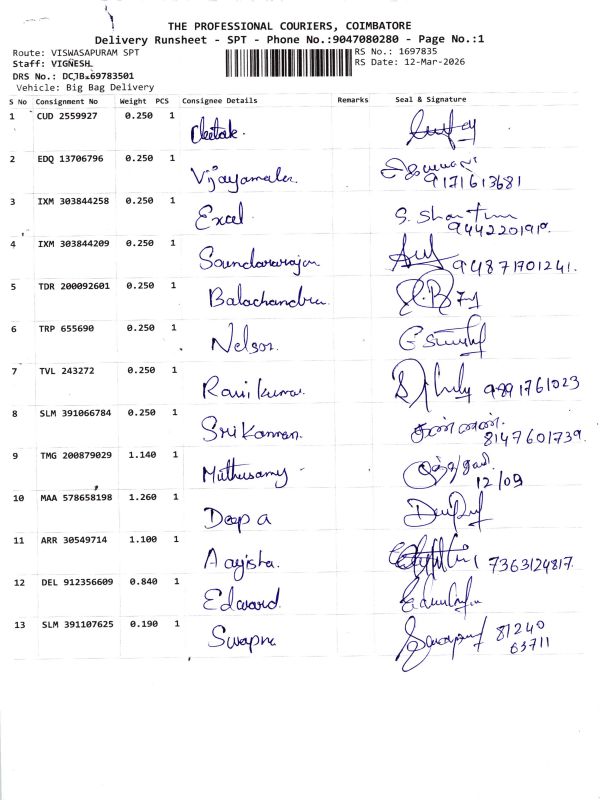 THE PROFESSIONAL COURIERS, COIMBATORE
Delivery Runsheet - SPT - Phone No.:9047080280 - Page No.:1
Route: VISWASAPURAM SPT
RS No.: 1697835
Staff: VIGNESH
RS Date: 12-Mar-2026
DRS No.: DCJB.69783501
Vehicle: Big Bag Delivery
S No Consignment No Weight PCS Consignee Details Remarks Seal & Signature
1 CUD 2559927 0.250 1
2 EDQ 13706796 0.250 1 Vijayamala
9171613681
3 IXM 303844258 0.250 1 Excel S. Shantm
944220191
4 IXM 303844209 0.250 1 Soundararajan
94871701241.
5 TDR 200092601 0.250 1 Balachandra
6 TRP 655690 0.250 1 Nelson
7 TVL 243272 0.250 1 Ravikumar 9891761023
8 SLM 391066784 0.250 1 Srikannan கண்ணன்
8147601739.
9 TMG 200879029 1.140 1 Muthusamy
12/09
10 MAA 578658198 1.260 1 Deepa
11 ARR 30549714 1.100 1 Aayisha 7363124817.
12 DEL 912356609 0.840 1 Edward
13 SLM 391107625 0.190 1 Swapna 81240
63711